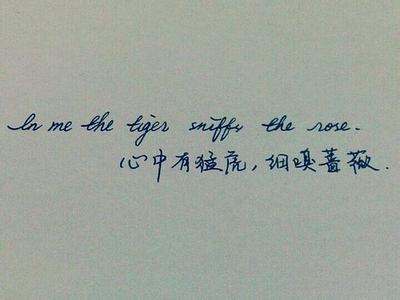 In me the tiger sniffs the rose.
心中有猛虎，细嗅蔷薇.